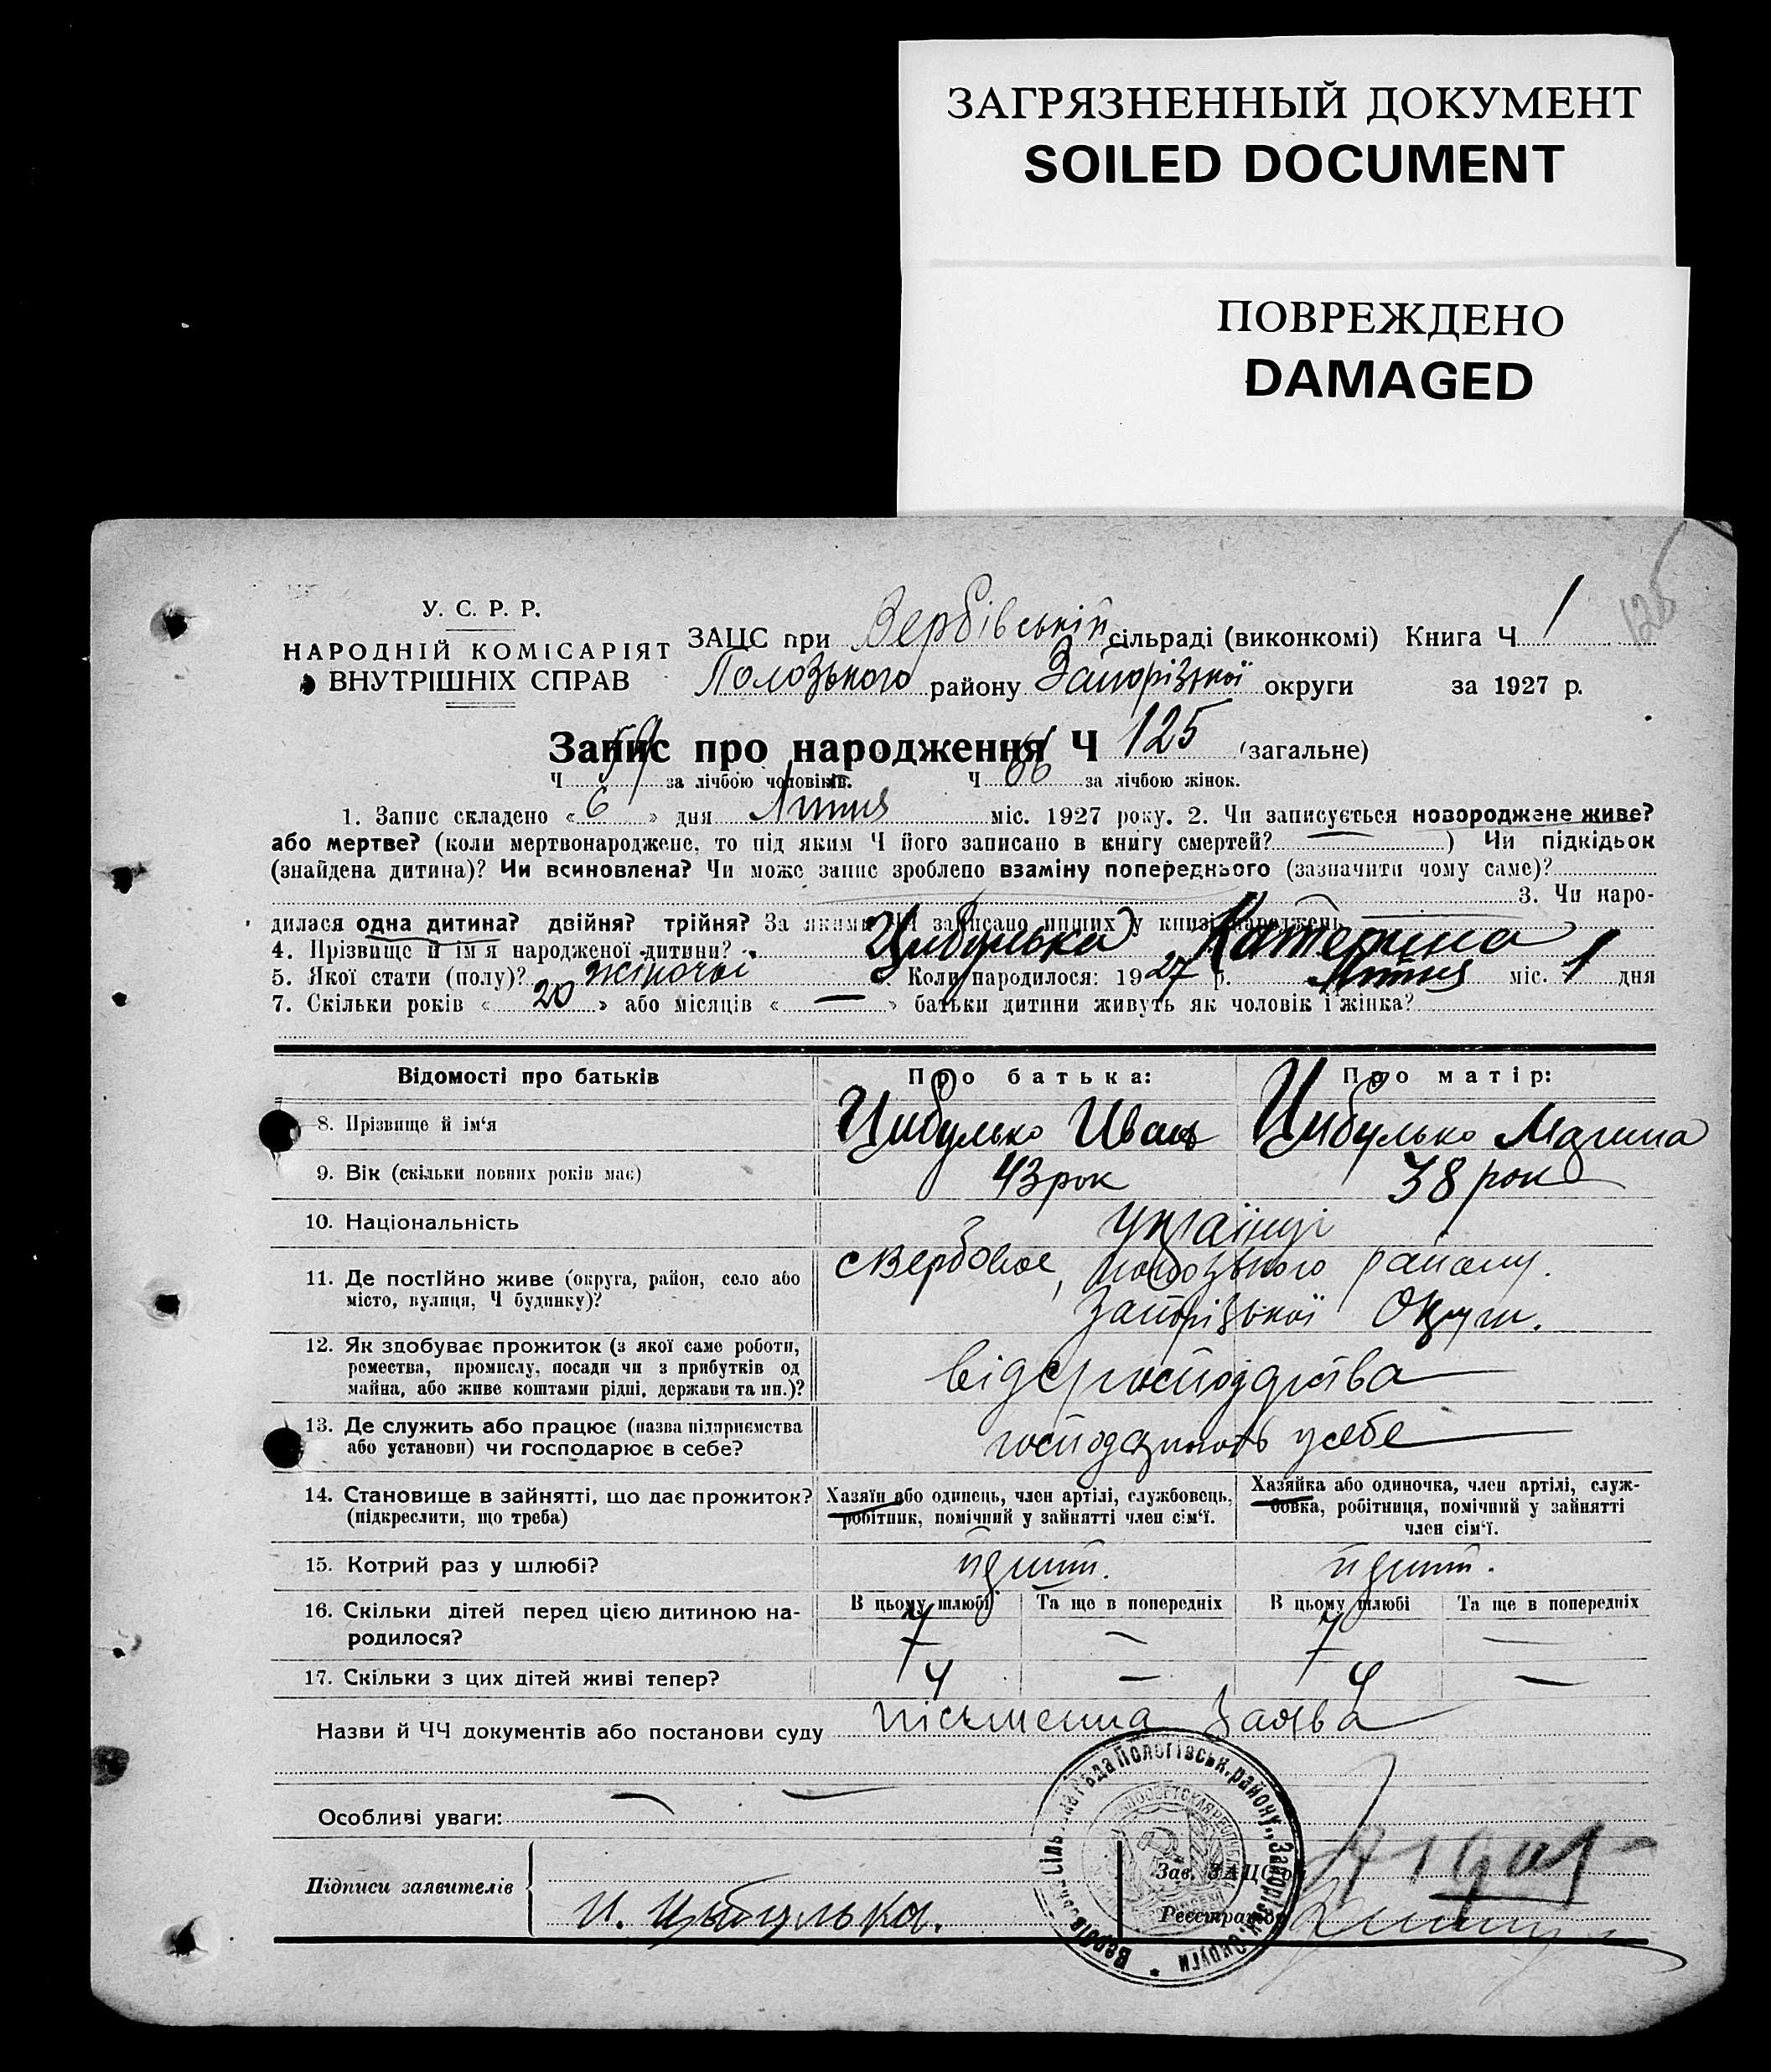 ЗАГРЯЗНЕННЫЙ ДОКУМЕНТ
SOILED DOCUMENT
ПОВРЕЖДЕНО
DAMAGED
125
У. С. Р. Р.
НАРОДНІЙ КОМІСАРІЯТ
ВНУТРІШНІХ СПРАВ
ЗАЦС при Вербівській сільраді (виконкомі) Книга Ч 1
Пологського району Запорізької округи за 1927 р.
Запис про народження Ч 125 (загальне)
Ч 59 за лічбою чоловіків. Ч 66 за лічбою жінок.
1. Запис складено « 6 » дня Липня міс. 1927 року. 2. Чи записується новороджене живе?
або мертве? (коли мертвонароджене, то під яким Ч його записано в книгу смертей? — ) Чи підкідьок
(знайдена дитина)? Чи всиновлена? Чи може запис зроблено взаміну попереднього (зазначити чому саме)?
3. Чи наро-
дилася одна дитина? двійня? трійня? За якими ЧЧ записано инших у книзі народжень
4. Прізвище й ім'я народженої дитини? Цибулька Катерина
5. Якої стати (полу)? жіночої 6. Коли народилося: 1927 р. Липня міс. 1 дня
7. Скільки років « 20 » або місяців « — » батьки дитини живуть як чоловік і жінка?
Відомості про батьків Про батька: Про матір:
8. Прізвище й ім'я Цибулько Иван Цибулько Марина
9. Вік (скільки повних років має) 43 рок 38 рок
10. Національність українці
11. Де постійно живе (округа, район, село або с Вербовое, пологзького району.
місто, вулиця, Ч будинку)? Запорізької Округи.
12. Як здобуває прожиток (з якої саме роботи,
ремества, промислу, посади чи з прибутків од
майна, або живе коштами рідні, держави та ин.)?
13. Де служить або працює (назва підприємства
або установи) чи господарює в себе? господарюють у себе
14. Становище в зайнятті, що дає прожиток? Хазяїн або одинець, член артілі, службовець, Хазяйка або одиночка, член артілі, служ-
(підкреслити, що треба) робітник, помічний у зайнятті член сім'ї. бовка, робітниця, помічний у зайнятті
член сім'ї.
15. Котрий раз у шлюбі?
16. Скільки дітей перед цією дитиною на- В цьому шлюбі Та ще в попередніх В цьому шлюбі Та ще в попередніх
родилося? 7 — 7 —
17. Скільки з цих дітей живі тепер? 4 — 4 —
Назви й ЧЧ документів або постанови суду письменна Заява
Особливі уваги:
Підписи заявителів И. Цыбулька.
Зав. ЗАЦСом
Реєстратор